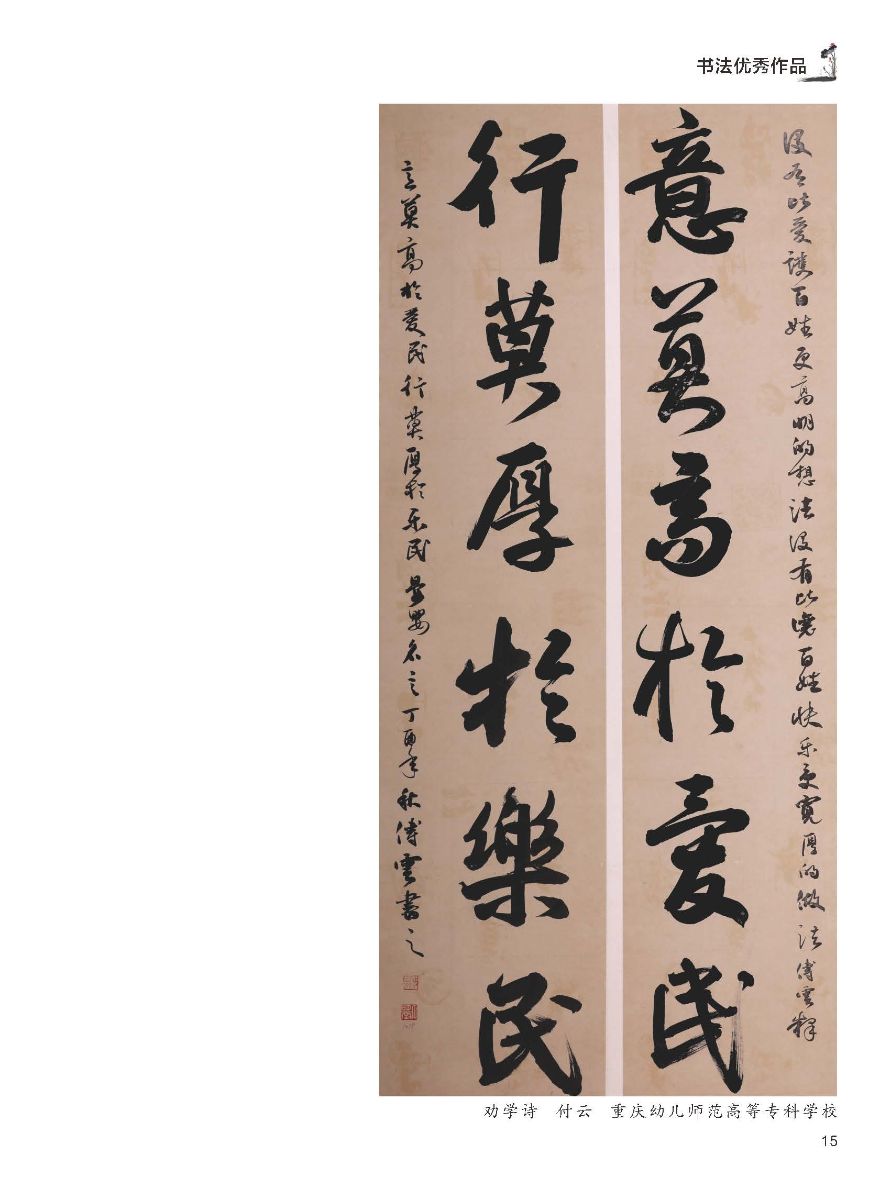 书法优秀作品
没有比爱護百姓更高明的想法没有比讓百姓快乐更寬厚的做法傅雲释
意莫高於愛民
行莫厚於樂民
意莫高於爱民行莫厚於乐民晏嬰名言丁酉年秋傅雲書之
劝学诗 付云 重庆幼儿师范高等专科学校
15